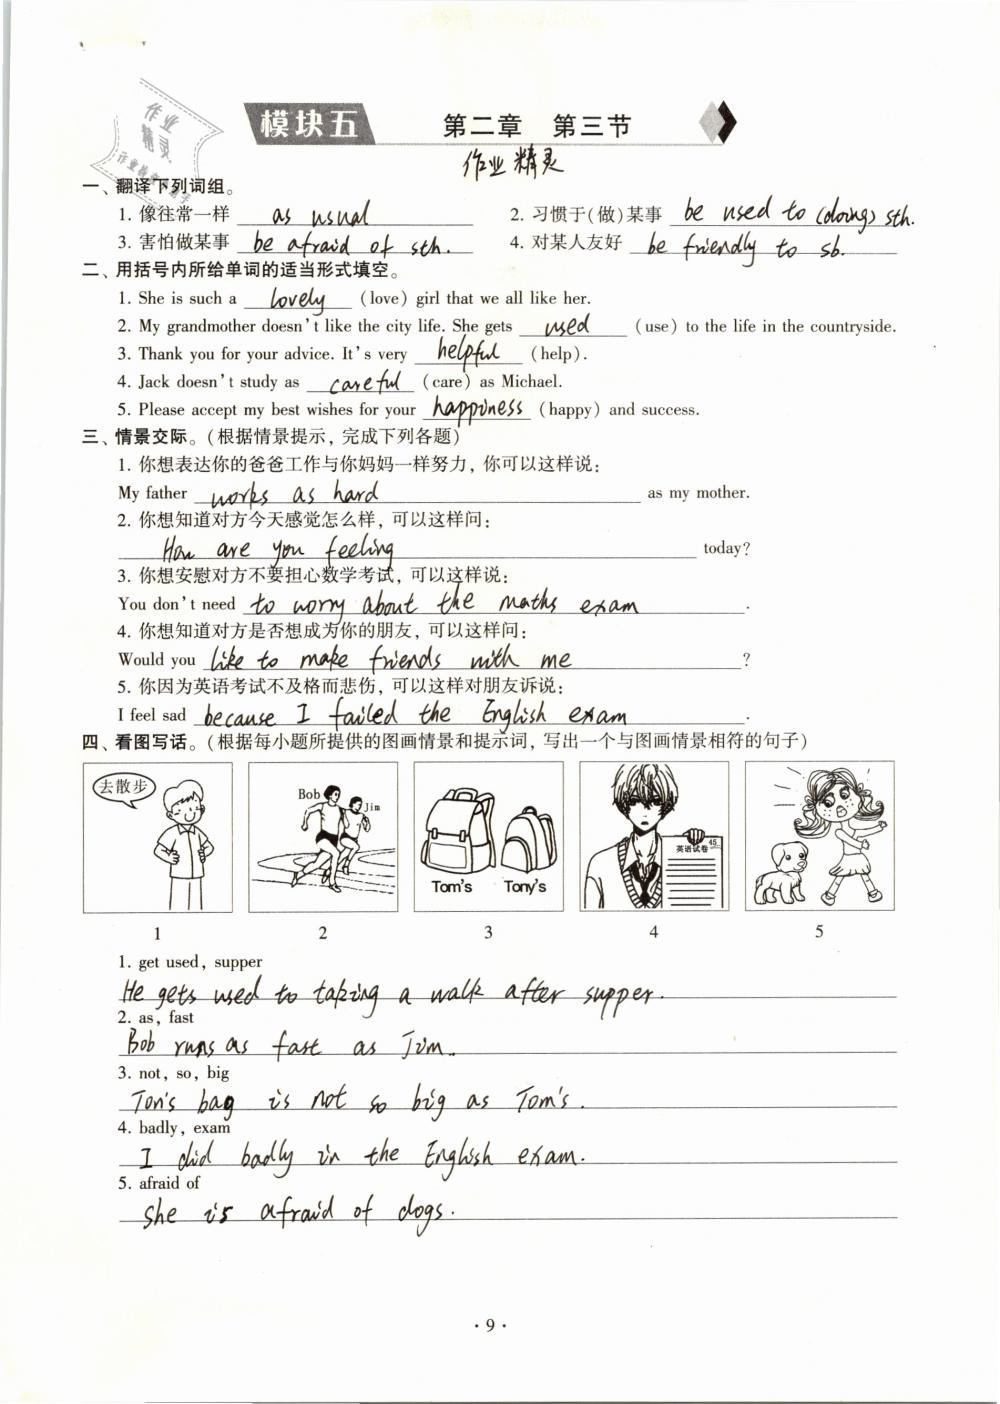 作业
精灵
模块五 第二章 第三节
作业精灵
一、翻译下列词组。
1. 像往常一样 as usual 2. 习惯于(做)某事 be used to (doing) sth.
3. 害怕做某事 be afraid of sth. 4. 对某人友好 be friendly to sb.
二、用括号内所给单词的适当形式填空。
1. She is such a lovely (love) girl that we all like her.
2. My grandmother doesn't like the city life. She gets used (use) to the life in the countryside.
3. Thank you for your advice. It's very helpful (help).
4. Jack doesn't study as careful (care) as Michael.
5. Please accept my best wishes for your happiness (happy) and success.
三、情景交际。(根据情景提示,完成下列各题)
1. 你想表达你的爸爸工作与你妈妈一样努力,你可以这样说:
My father works as hard as my mother.
2. 你想知道对方今天感觉怎么样,可以这样问:
How are you feeling today?
3. 你想安慰对方不要担心数学考试,可以这样说:
You don't need to worry about the maths exam.
4. 你想知道对方是否想成为你的朋友,可以这样问:
Would you like to make friends with me?
5. 你因为英语考试不及格而悲伤,可以这样对朋友诉说:
I feel sad because I failed the English exam.
四、看图写话。(根据每小题所提供的图画情景和提示词,写出一个与图画情景相符的句子)
去散步 Bob Jim Tom's Tony's 英语试卷 45
1 2 3 4 5
1. get used, supper
He gets used to taking a walk after supper.
2. as, fast
Bob runs as fast as Jim.
3. not, so, big
Ton's bag is not so big as Tom's.
4. badly, exam
I did badly in the English exam.
5. afraid of
she is afraid of dogs.
·9·